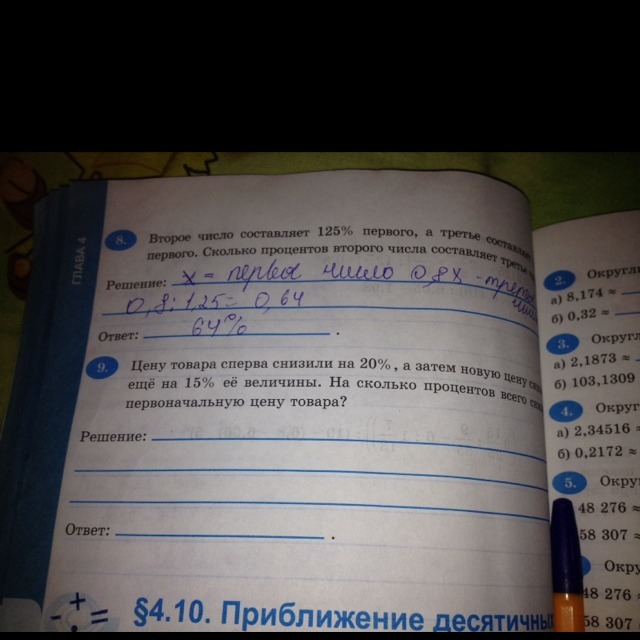 ГЛАВА 4
8. Второе число составляет 125% первого, а третье
первого. Сколько процентов второго числа составляет
Решение: x = первое число 0,8x - третье
число
0,8:1,25= 0,64
64%
Ответ: .
9. Цену товара сперва снизили на 20%, а затем новую цену
ещё на 15% её величины. На сколько процентов всего
первоначальную цену товара?
Решение:
Ответ: .
§4.10. Приближение десятичных
2.
а) 8,174 ≈
б) 0,32 ≈
3.
а) 2,1873 ≈
б) 103,1309
4.
а) 2,34516 ≈
б) 0,2172 ≈
5.
48 276 ≈
58 307 ≈
48 276 ≈
58 307 ≈